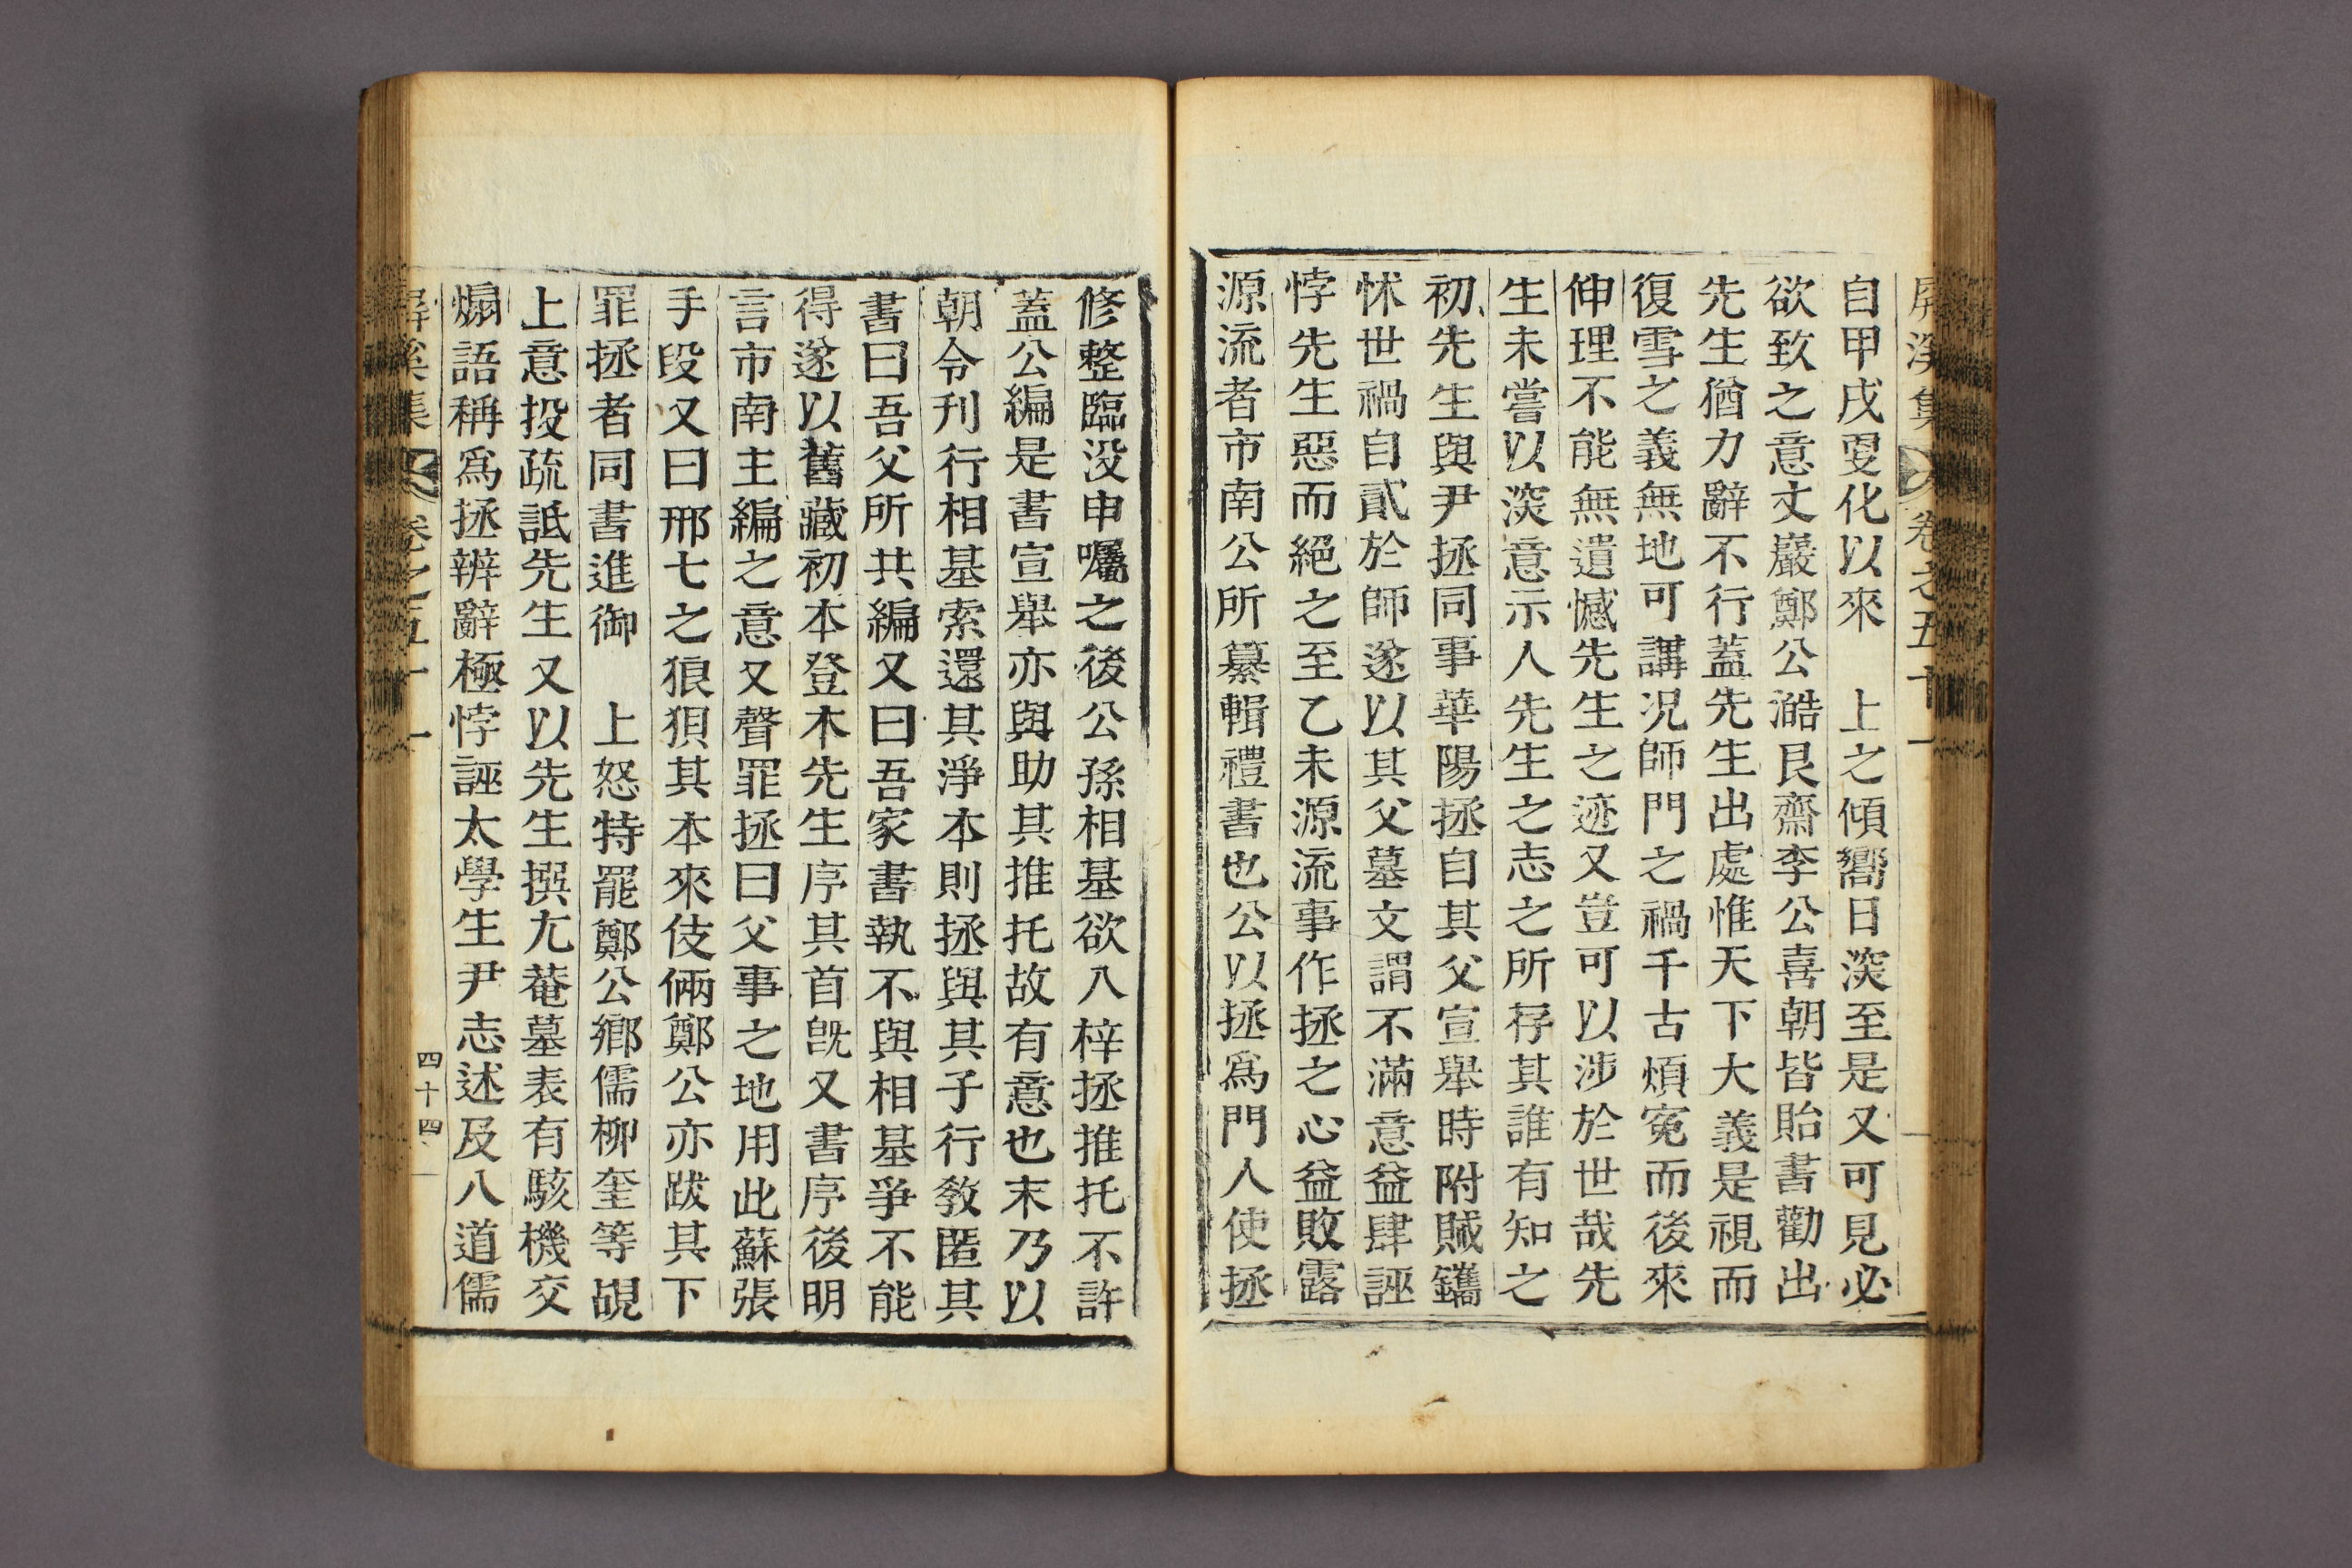 屛溪集 卷之五十一
自甲戌更化以來 上之傾嚮日深至是又可見必
欲致之意丈巖鄭公澔艮齋李公喜朝皆貽書勸出
先生猶力辭不行蓋先生出處惟天下大義是視而
復雪之義無地可講况師門之禍千古煩寃而後來
伸理不能無遺憾先生之迹又豈可以涉於世哉先
生未嘗以深意示人先生之志之所存其誰有知之
初先生與尹拯同事華陽拯自其父宣擧時附賊鑴
怵世禍自貳於師遂以其父墓文謂不滿意益肆誣
悖先生惡而絕之至乙未源流事作拯之心益敗露
源流者市南公所纂輯禮書也公以拯爲門人使拯
修整臨没申囑之後公孫相基欲入梓拯推托不許
蓋公編是書宣舉亦與助其推托故有意也末乃以
朝令刊行相基索還其淨本則拯與其子行敎匿其
書曰吾父所共編又曰吾家書執不與相基爭不能
得遂以舊藏初本登木先生序其首旣又書序後明
言市南主編之意又聲罪拯曰父事之地用此蘇張
手段又曰邢七之狼狽其本來伎倆鄭公亦跋其下
罪拯者同書進御 上怒特罷鄭公鄕儒柳奎等覘
上意投疏詆先生又以先生撰尤菴墓表有駭機交
煽語稱爲拯辨辭極悖誣太學生尹志述及八道儒
屛溪集 卷之五十一 四十四